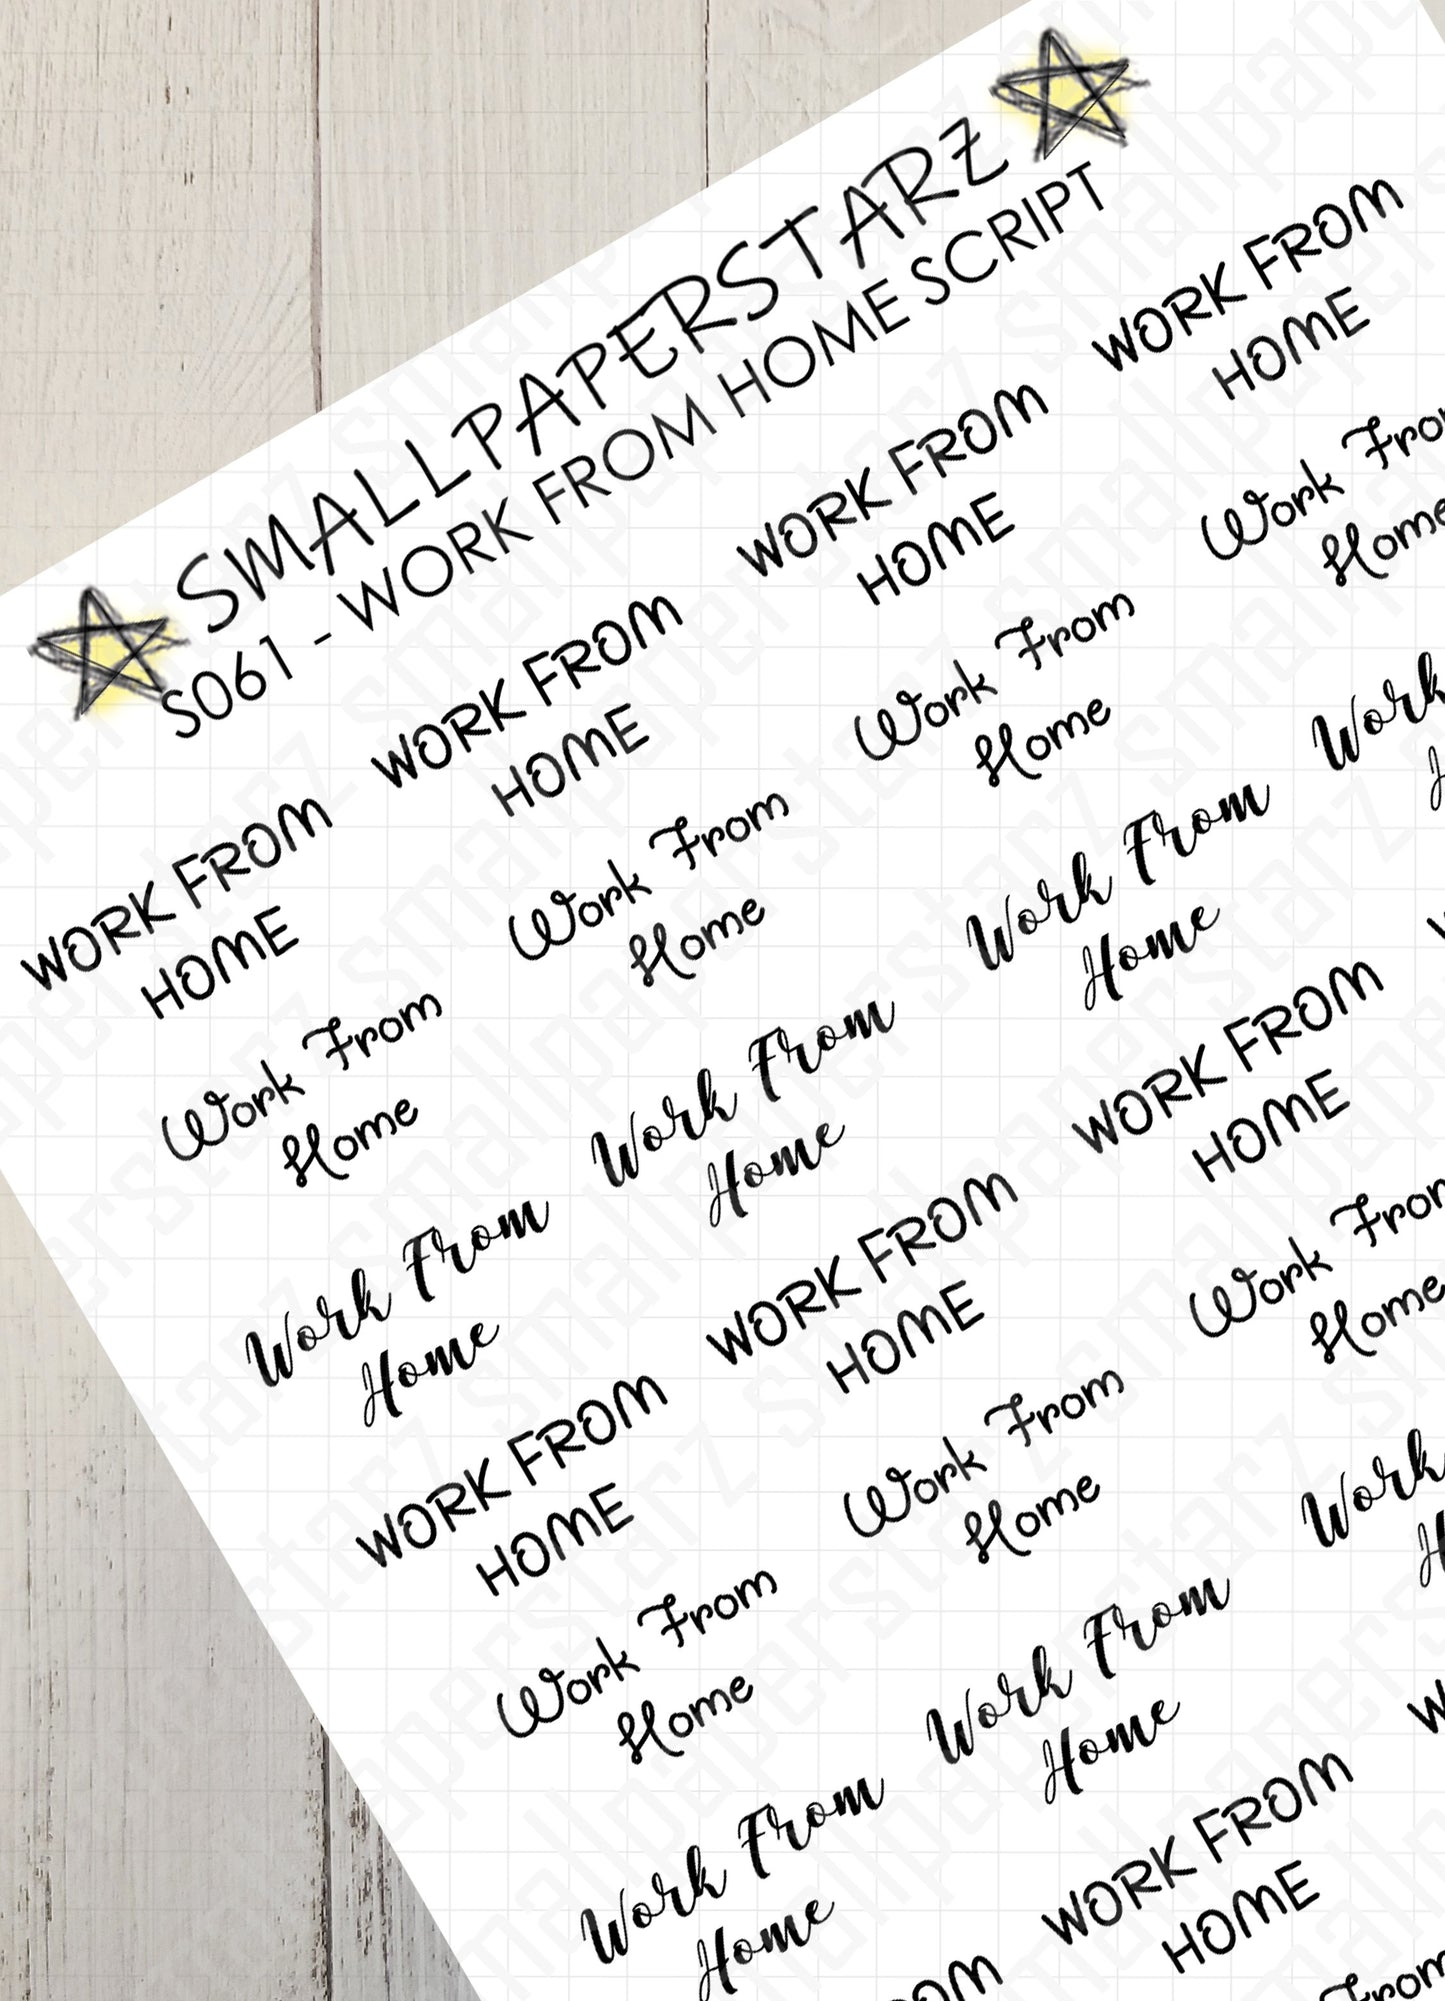 SMALLPAPERSTARZ
S061 - WORK FROM HOME SCRIPT
WORK FROM WORK FROM WORK FROM WORK FROM
HOME HOME HOME HOME
Work From Work From Work From Work
Home Home Home Home
Work From Work From Work From Work
Home Home Home
WORK FROM WORK FROM WORK FROM
HOME HOME HOME
Work From Work From Work
Home Home Home
Work From Work From Work
Home Home
WORK FROM
HOME
From